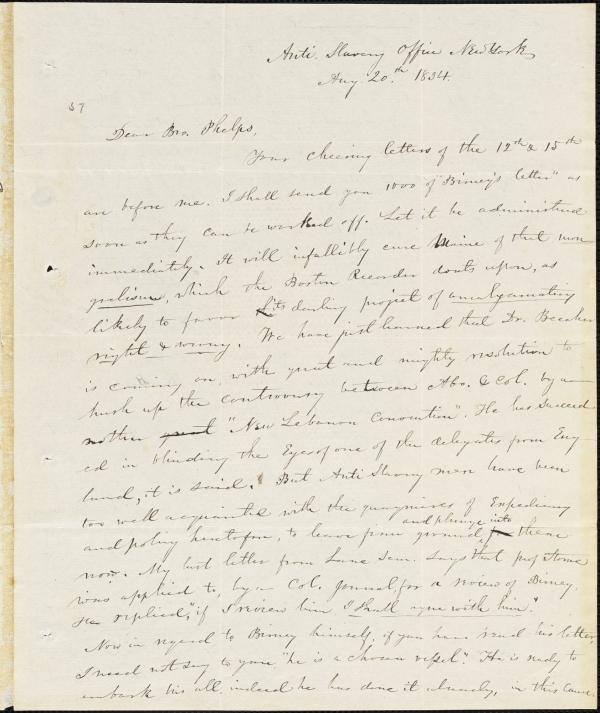 Anti. Slavery Office New York
Aug 20.th 1834.
57
Dear Bro. Phelps,
Your cheering letters of the 12th & 15th
are before me. I shall send you 1000 of "Birney's letter" as
soon as they can be worked off. Let it be administered
immediately. It will infallibly cure Maine of that mon-
grelism, which the Boston Recorder doats upon, as
likely to favor its darling project of amalgamating
right & wrong. We have just learned that Dr. Beecher
is coming on, with great and mighty resolution to
hush up the controversy between Abo. & Col. by a-
nother great "New Lebanon Convention". He has succeed-
ed in blinding the Eyes of one of the delegates from Eng-
land, it is said. But Anti Slavery men have been
too well acquainted with the quagmires of Expediency
and policy heretofore, to leave firm ground, and plunge into these
now. My last letter from Lane Sem. says that prof Stowe
was applied to, by a Col. Journal, for a review of Birney.
He replied, "if I review him, I shall agree with him".
Now in regard to Birney himself, if you have read his letter,
I need not say to you, "he is a chosen vessel". He is ready to
embark his all, indeed he has done it already, in this cause.